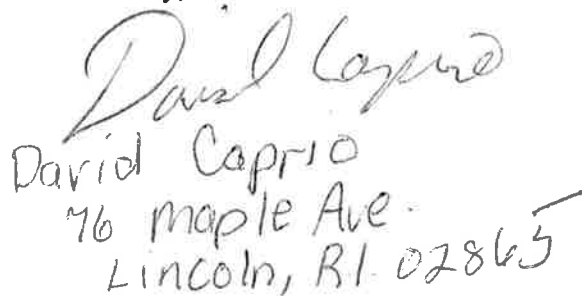 David Caprio
David Caprio
76 Maple Ave.
Lincoln, RI 02865